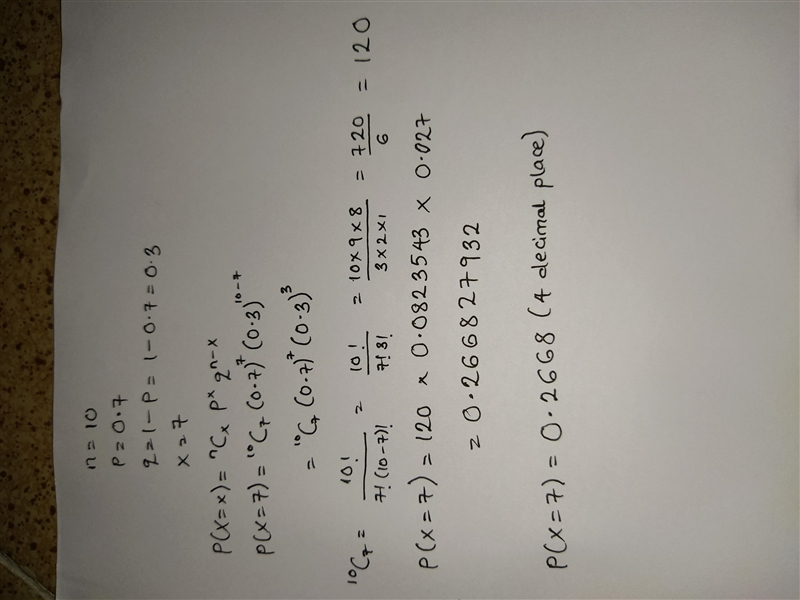 n = 10
P = 0.7
q = 1 - P = 1 - 0.7 = 0.3
x = 7
P(X = x) = ⁿCₓ Pˣ qⁿ⁻ˣ
P(X = 7) = ¹⁰C₇ (0.7)⁷ (0.3)¹⁰⁻⁷
= ¹⁰C₇ (0.7)⁷ (0.3)³
¹⁰C₇ = 10! / 7! (10-7)! = 10! / 7! 3! = 10 × 9 × 8 / 3 × 2 × 1 = 720 / 6 = 120
P(X = 7) = 120 × 0.0823543 × 0.027
= 0.266827932
P(X = 7) = 0.2668 (4 decimal place)